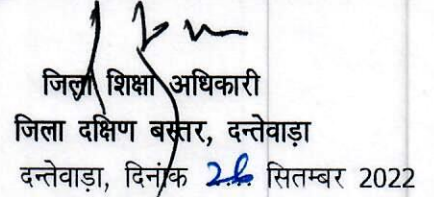 जिला शिक्षा अधिकारी
जिला दक्षिण बस्तर, दन्तेवाड़ा
दन्तेवाड़ा, दिनांक सितम्बर 2022